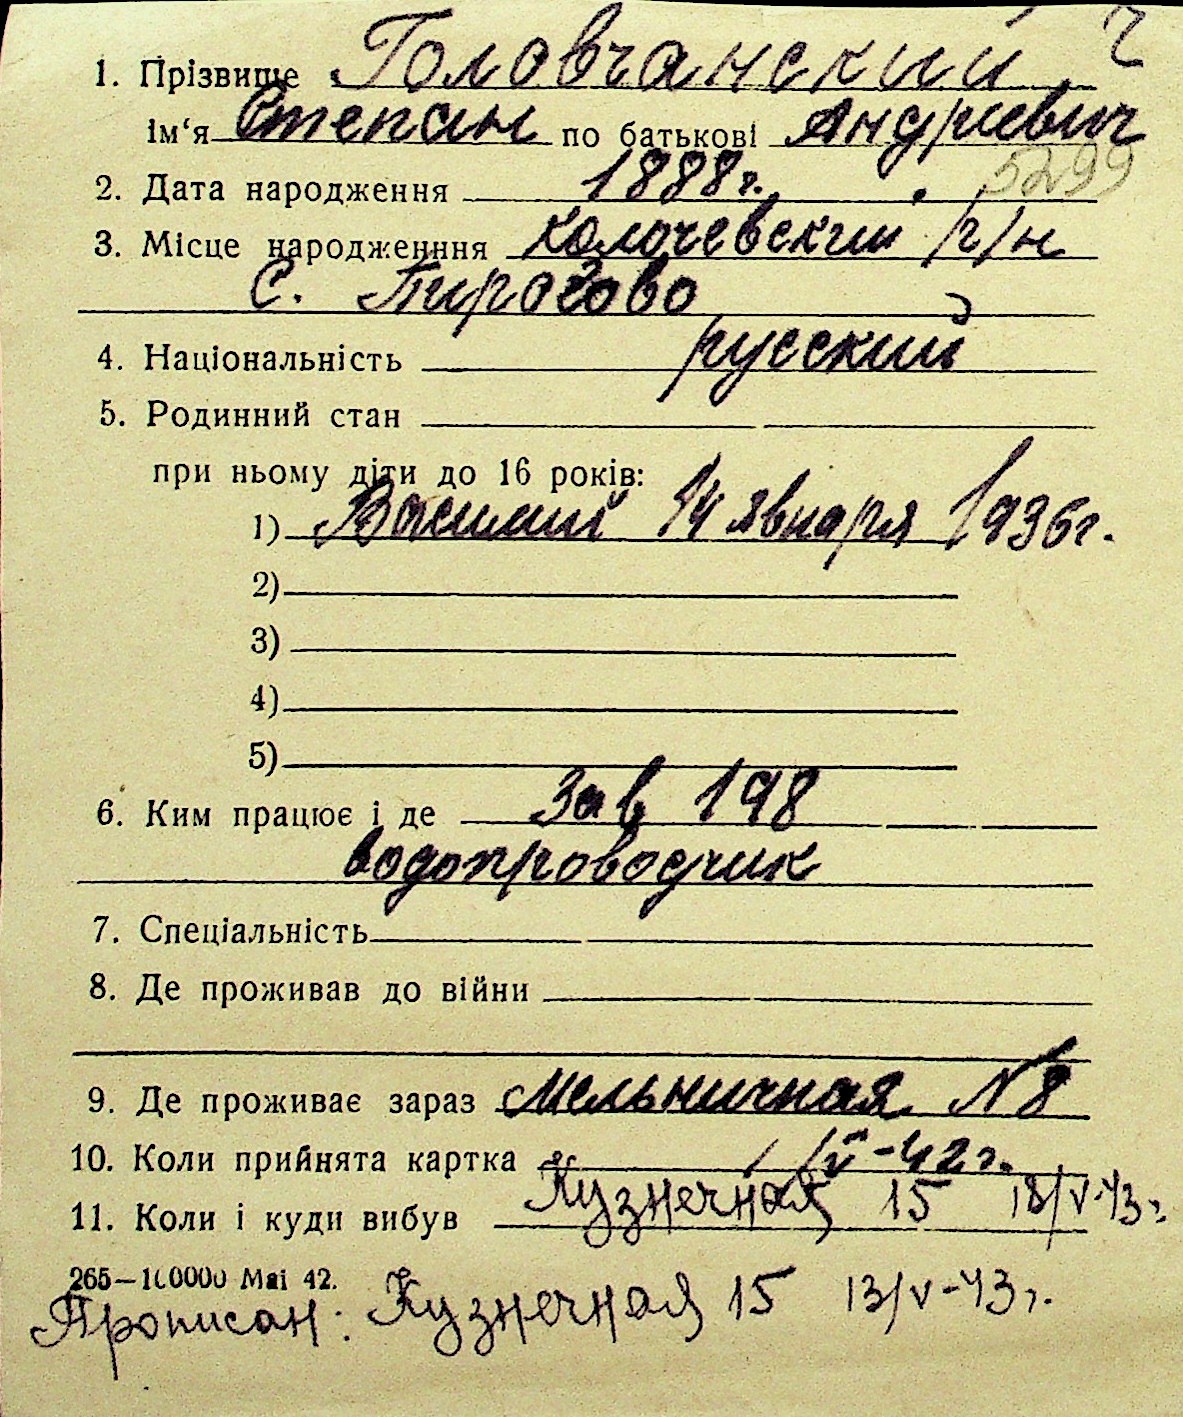 1. Прізвище Головчанский
Ім'я Степан по батькові Андриевич
5299
2. Дата народження 1888 г.
3. Місце народженння Колочевский р/н
с. Пирогово
4. Національність русский
5. Родинний стан
при ньому діти до 16 років:
1) Василий 14 января 1936 г.
2)
3)
4)
5)
6. Ким працює і де Зав 198
водопроводчик
7. Спеціальність
8. Де проживав до війни
9. Де проживає зараз Мельничная N 8
10. Коли прийнята картка V-42 г.
11. Коли і куди вибув Кузнечная 15 13/V-43 г.
265—100000 Mai 42.
Прописан: Кузнечная 15 13/V-43 г.